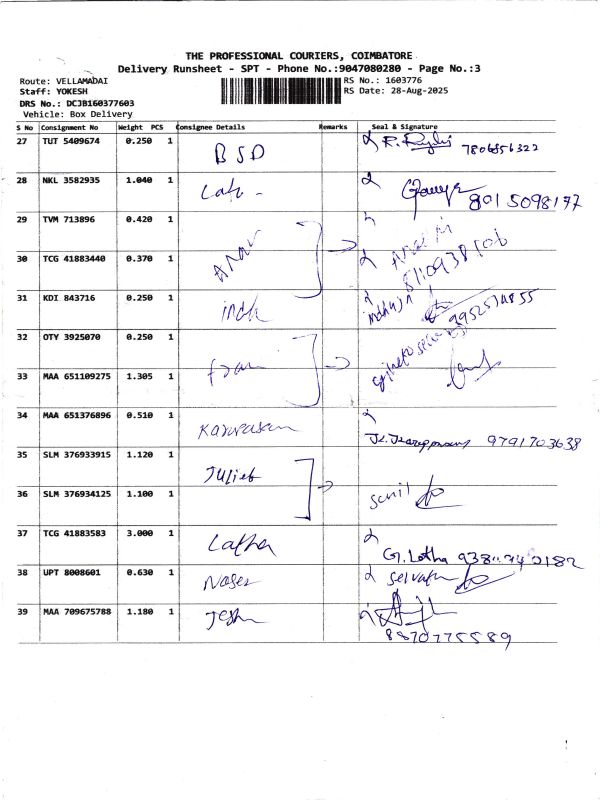 THE PROFESSIONAL COURIERS, COIMBATORE
Delivery Runsheet - SPT - Phone No.:9047080280 - Page No.:3
Route: VELLAMADAI RS No.: 1603776
Staff: YOKESH RS Date: 28-Aug-2025
DRS No.: DCJB160377603
Vehicle: Box Delivery
S No Consignment No Weight PCS Consignee Details Remarks Seal & Signature
27 TUT 5409674 0.250 1 BSD 7806856322
28 NKL 3582935 1.040 1 8015098177
29 TVM 713896 0.420 1
30 TCG 41883440 0.370 1
31 KDI 843716 0.250 1 9952574855
32 OTY 3925070 0.250 1
33 MAA 651109275 1.305 1
34 MAA 651376896 0.510 1 9791703638
35 SLM 376933915 1.120 1 Juliet
36 SLM 376934125 1.100 1 Sunil
37 TCG 41883583 3.000 1 Latha G. Lotha
38 UPT 8008601 0.630 1 Noses
39 MAA 709675788 1.180 1 8870775589